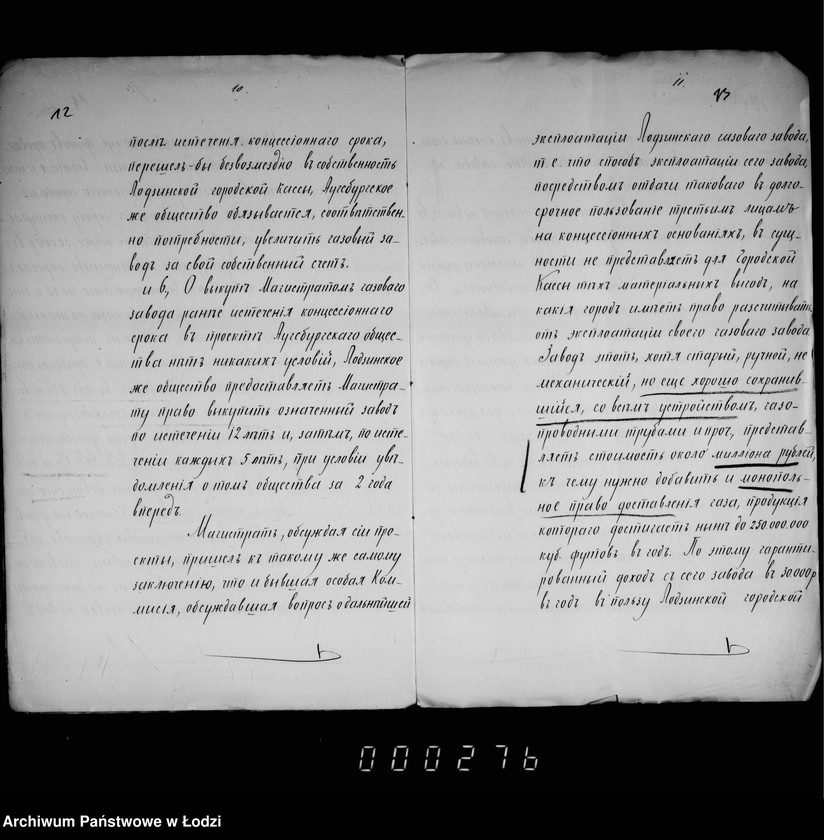 10.
12
послѣ истеченія концессіоннаго срока,
перешелъ-бы безвозмездно въ собственность
Лодзинской городской кассы, Аугсбургское
же общество обязывается, соотвѣтствен-
но потребности, увеличить газовый за-
водъ за свой собственный счетъ.
и 6, О выкупѣ Магистратомъ газоваго
завода ранѣе истеченія концессіоннаго
срока въ проектѣ Аугсбургскаго общес-
тва нѣтъ никакихъ условій, Лодзинское
же общество предоставляетъ Магистра-
ту право выкупить означенный заводъ
по истеченіи 12 лѣтъ и, затѣмъ, по исте-
ченіи каждыхъ 5 лѣтъ, при условіи увѣ-
домленія о томъ общества за 2 года
впередъ.
Магистратъ, обсуждая сіи про-
екты, пришелъ къ такому же самому
заключенію, что и бывшая особая Ком-
мисія, обсуждавшая вопросъ о дальнѣйшей
11.
13
эксплоатаціи Лодзинскаго газоваго завода,
т. е. что способъ эксплоатаціи сего завода,
посредствомъ отдачи таковаго въ долго-
срочное пользованіе третьимъ лицамъ
на концессіонныхъ основаніяхъ, въ сущ-
ности не представляетъ для городской
Кассы тѣхъ матеріальныхъ выгодъ, на
какія городъ имѣетъ право разсчитывать
отъ эксплоатаціи своего газоваго завода.
Заводъ этотъ, хотя старый, ручной, не
механическій, но еще хорошо сохранив-
шійся, со всѣмъ устройствомъ, газо-
проводными трубами и проч., представ-
ляетъ стоимость около милліона рублей,
къ чему нужно добавить и монополь-
ное право доставленія газа, продукція
котораго достигаетъ нынѣ до 250.000.000
куб. футовъ въ годъ. По этому гаранти-
рованный доходъ съ сего завода въ 30.000 р
въ годъ въ пользу Лодзинской городской
000276
Archiwum Państwowe w Łodzi